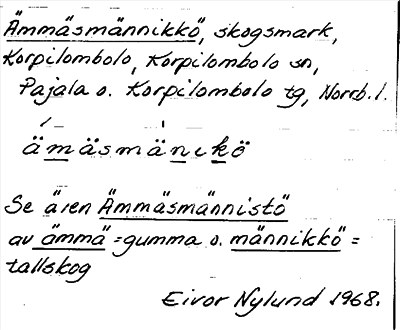 Ämmäsmännikkö, skogsmark,
Korpilombolo, Korpilombolo sn,
Pajala o. Korpilombolo tg, Norrb. l.
ämäsmänikö
Se även Ämmäsmännistö
av ämmä = gumma o. männikkö =
tallskog
Eivor Nylund 1968.